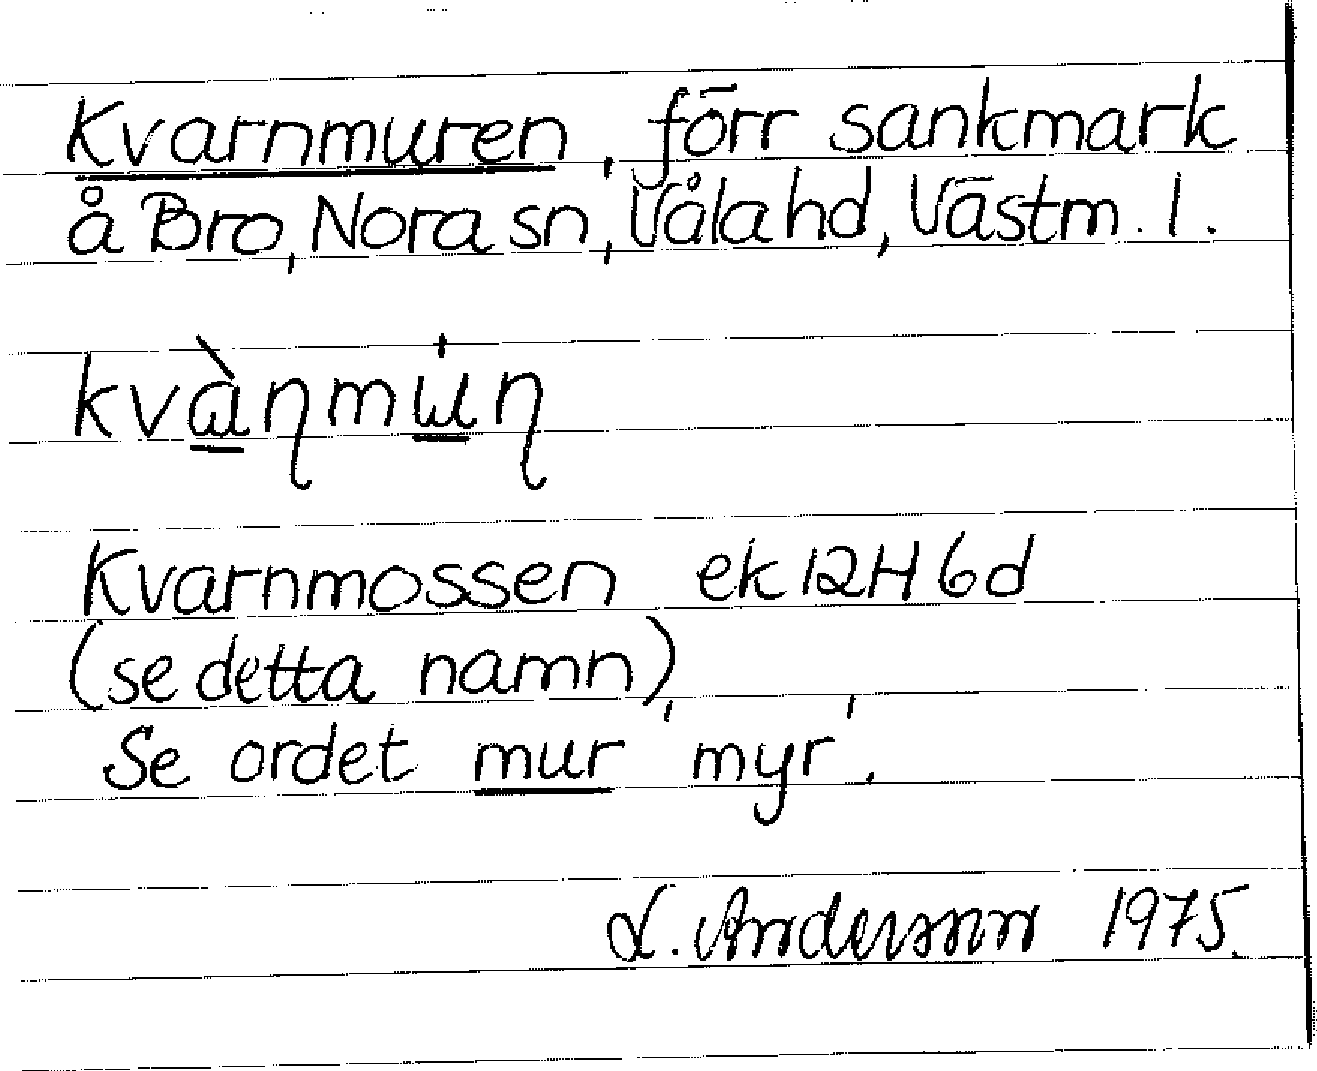 Kvarnmuren, förr sankmark
å Bro, Nora sn, Våla hd, Västm. l.
kvàɳmu̍ɳ
Kvarnmossen ek 12H6d
(se detta namn),
Se ordet mur 'myr'.
L. Andersson 1975.